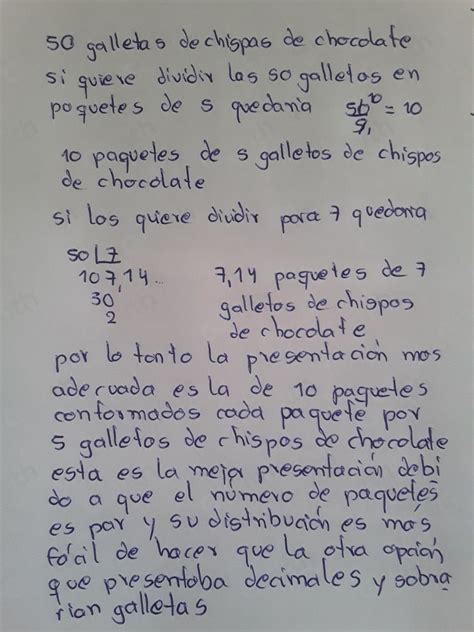 50 galletas de chispas de chocolate
si quiere dividir las 50 galletas en
paquetes de 5 quedaria 50/5 = 10
10 paquetes de 5 galletas de chispas
de chocolate
si los quiere dividir para 7 quedaria
50 7
10 7,14... 7,14 paquetes de 7
30 galletas de chispas
2 de chocolate
por lo tanto la presentación mas
adecuada es la de 10 paquetes
conformados cada paquete por
5 galletas de chispas de chocolate
esta es la mejor presentación debi
do a que el número de paquetes
es par y su distribución es mas
fácil de hacer que la otra opción
que presentaba decimales y sobra
rian galletas